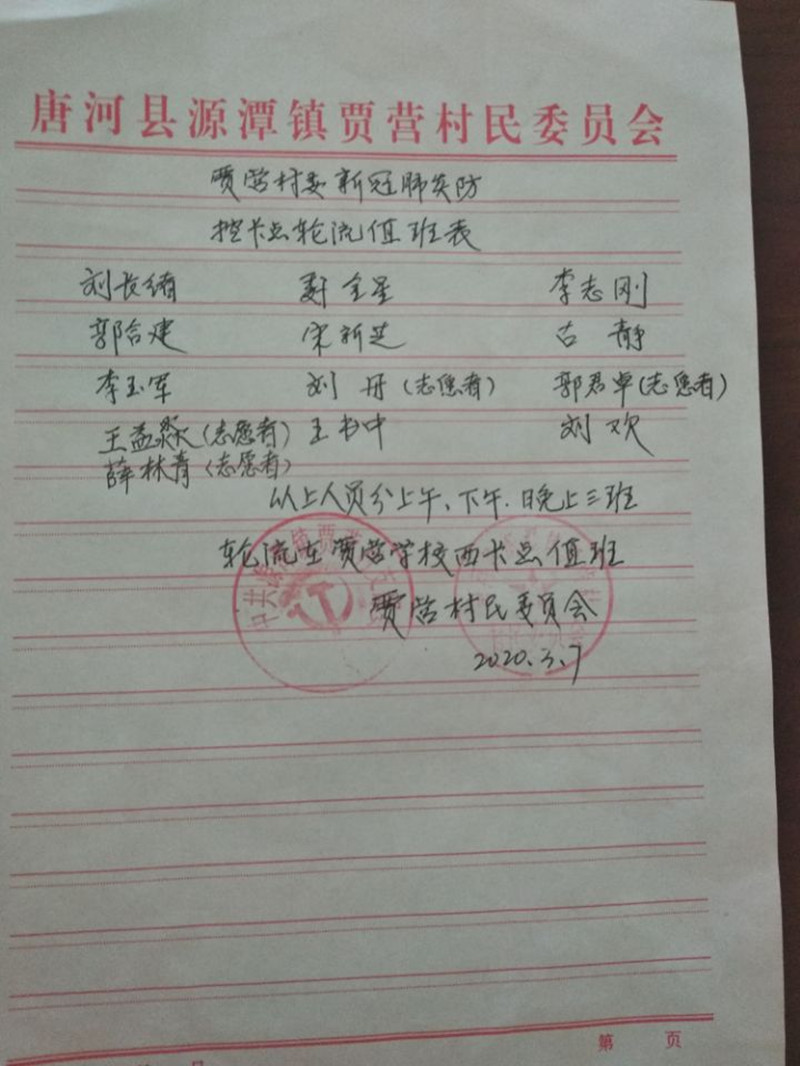 唐河县源潭镇贾营村民委员会
贾营村委新冠肺炎防
控卡点轮流值班表
刘长绪 全星 李志刚
郭合建 宋新芝 古静
李玉军 刘丹(志愿者) 郭君卓(志愿者)
王益淼(志愿者) 王书中 刘欢
薛林青(志愿者)
以上人员分上午、下午、晚上三班
轮流在贾营学校西卡点值班
贾营村民委员会
2020.3.7
第 页